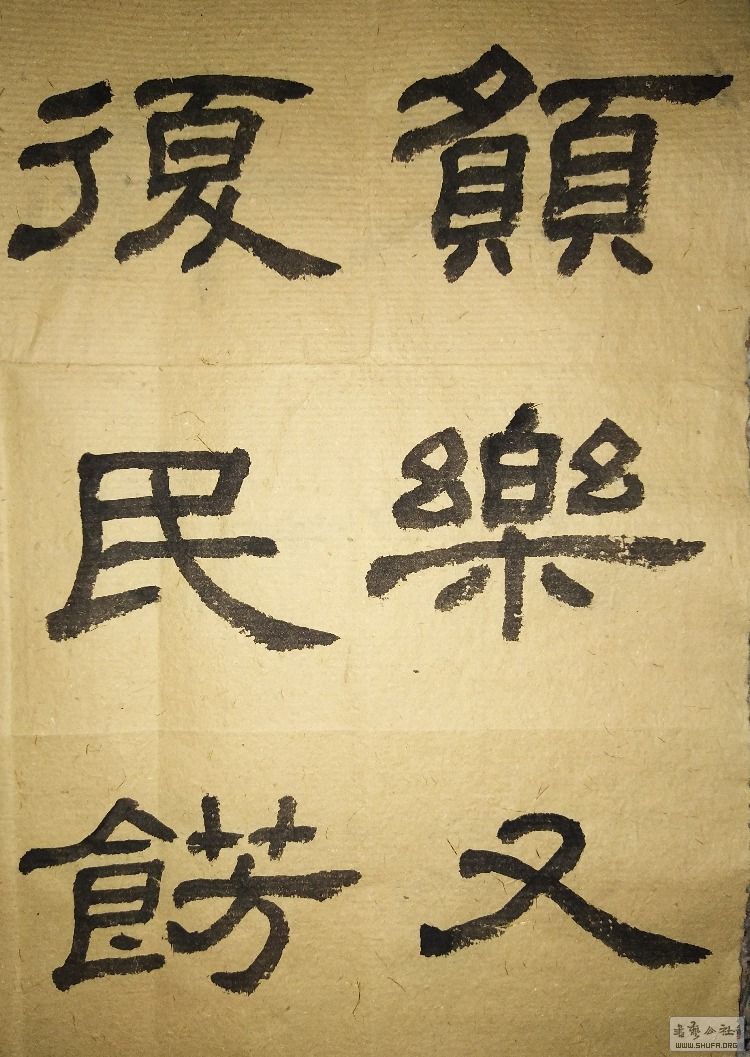 願樂又
復民餝
書藝公社
WWW.SHUFA.ORG